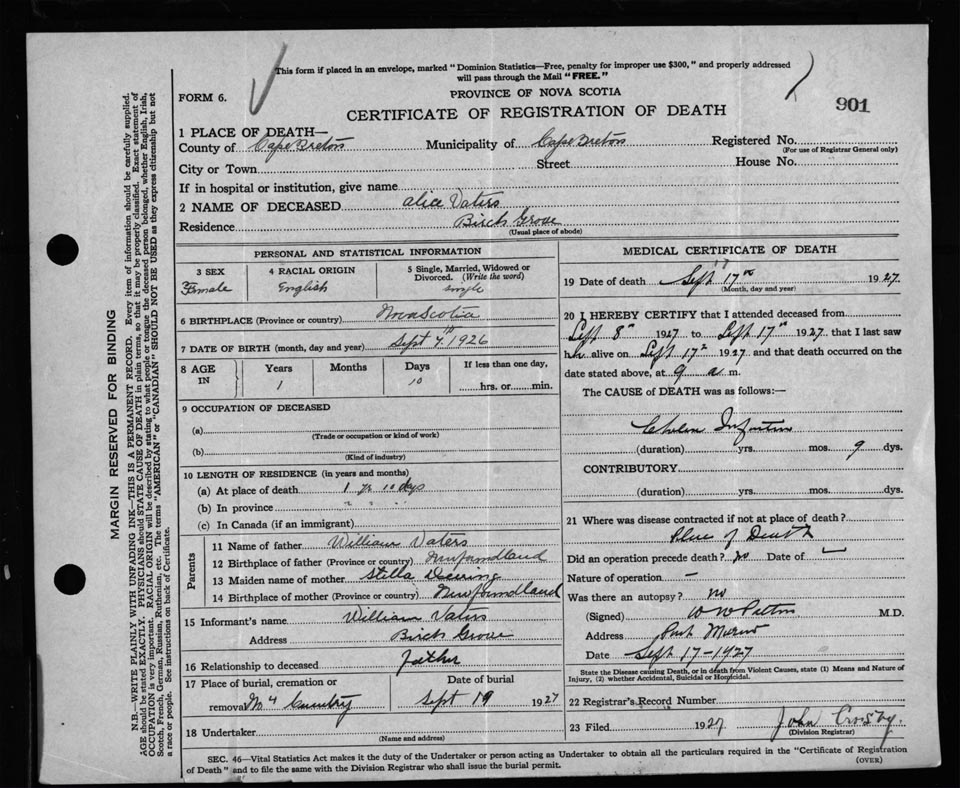 This form if placed in an envelope, marked "Dominion Statistics—Free, penalty for improper use $300," and properly addressed
will pass through the Mail "FREE."
FORM 6.
PROVINCE OF NOVA SCOTIA
901
CERTIFICATE OF REGISTRATION OF DEATH
1 PLACE OF DEATH—
County of Cape Breton Municipality of Cape Breton Registered No.
(For use of Registrar General only)
City or Town Street House No.
If in hospital or institution, give name
2 NAME OF DECEASED Alice Vaters
Residence Birch Grove
(Usual place of abode)
PERSONAL AND STATISTICAL INFORMATION
3 SEX 4 RACIAL ORIGIN 5 Single, Married, Widowed or
Divorced. (Write the word)
Female English single
6 BIRTHPLACE (Province or country) Nova Scotia
7 DATE OF BIRTH (month, day and year) Sept 7th 1926
8 AGE IN Years Months Days If less than one day,
1 10 hrs. or min.
9 OCCUPATION OF DECEASED
(a)
(Trade or occupation or kind of work)
(b)
(Kind of industry)
10 LENGTH OF RESIDENCE (in years and months)
(a) At place of death 1 yr 10 days
(b) In province " " "
(c) In Canada (if an immigrant)
Parents
11 Name of father William Vaters
12 Birthplace of father (Province or country) Newfoundland
13 Maiden name of mother Stella
14 Birthplace of mother (Province or country) Newfoundland
15 Informant's name William Vaters
Address Birch Grove
16 Relationship to deceased Father
17 Place of burial, cremation or Date of burial
removal No 4 Cemetery Sept 19 1927
18 Undertaker
(Name and address)
MEDICAL CERTIFICATE OF DEATH
19 Date of death Sept 17th 1927
(Month, day and year)
20 I HEREBY CERTIFY that I attended deceased from
Sept 8th 1927 to Sept 17th 1927, that I last saw
h alive on Sept 17 1927 and that death occurred on the
date stated above, at 9 a m.
The CAUSE of DEATH was as follows:—
Cholera Infantum
(duration) yrs. mos. 9 dys.
CONTRIBUTORY
(duration) yrs. mos. dys.
21 Where was disease contracted if not at place of death?
Place of Death
Did an operation precede death? No Date of —
Nature of operation —
Was there an autopsy? no
(Signed) W W Patton M.D.
Address Port Morien
Date Sept 17-1927
State the Disease causing Death, or in death from Violent Causes, state (1) Means and Nature of
Injury, (2) whether Accidental, Suicidal or Homicidal.
22 Registrar's Record Number
23 Filed 1927 John Crosby.
(Division Registrar)
SEC. 46—Vital Statistics Act makes it the duty of the Undertaker or person acting as Undertaker to obtain all the particulars required in the "Certificate of Registration
of Death" and to file the same with the Division Registrar who shall issue the burial permit.
(OVER)
MARGIN RESERVED FOR BINDING
N.B.—WRITE PLAINLY WITH UNFADING INK—THIS IS A PERMANENT RECORD. Every item of information should be carefully supplied.
AGE should be stated EXACTLY. PHYSICIANS should STATE CAUSE OF DEATH in plain terms, so that it may be properly classified. Exact statement of
OCCUPATION is very important. RACIAL ORIGIN will be described by stating to what people or tongue the deceased person belonged, whether English, Irish,
Scotch, French, German, Russian, Ruthenian, etc. The terms "AMERICAN" or "CANADIAN" SHOULD NOT BE USED as they express citizenship but not
a race or people. See instructions on back of Certificate.